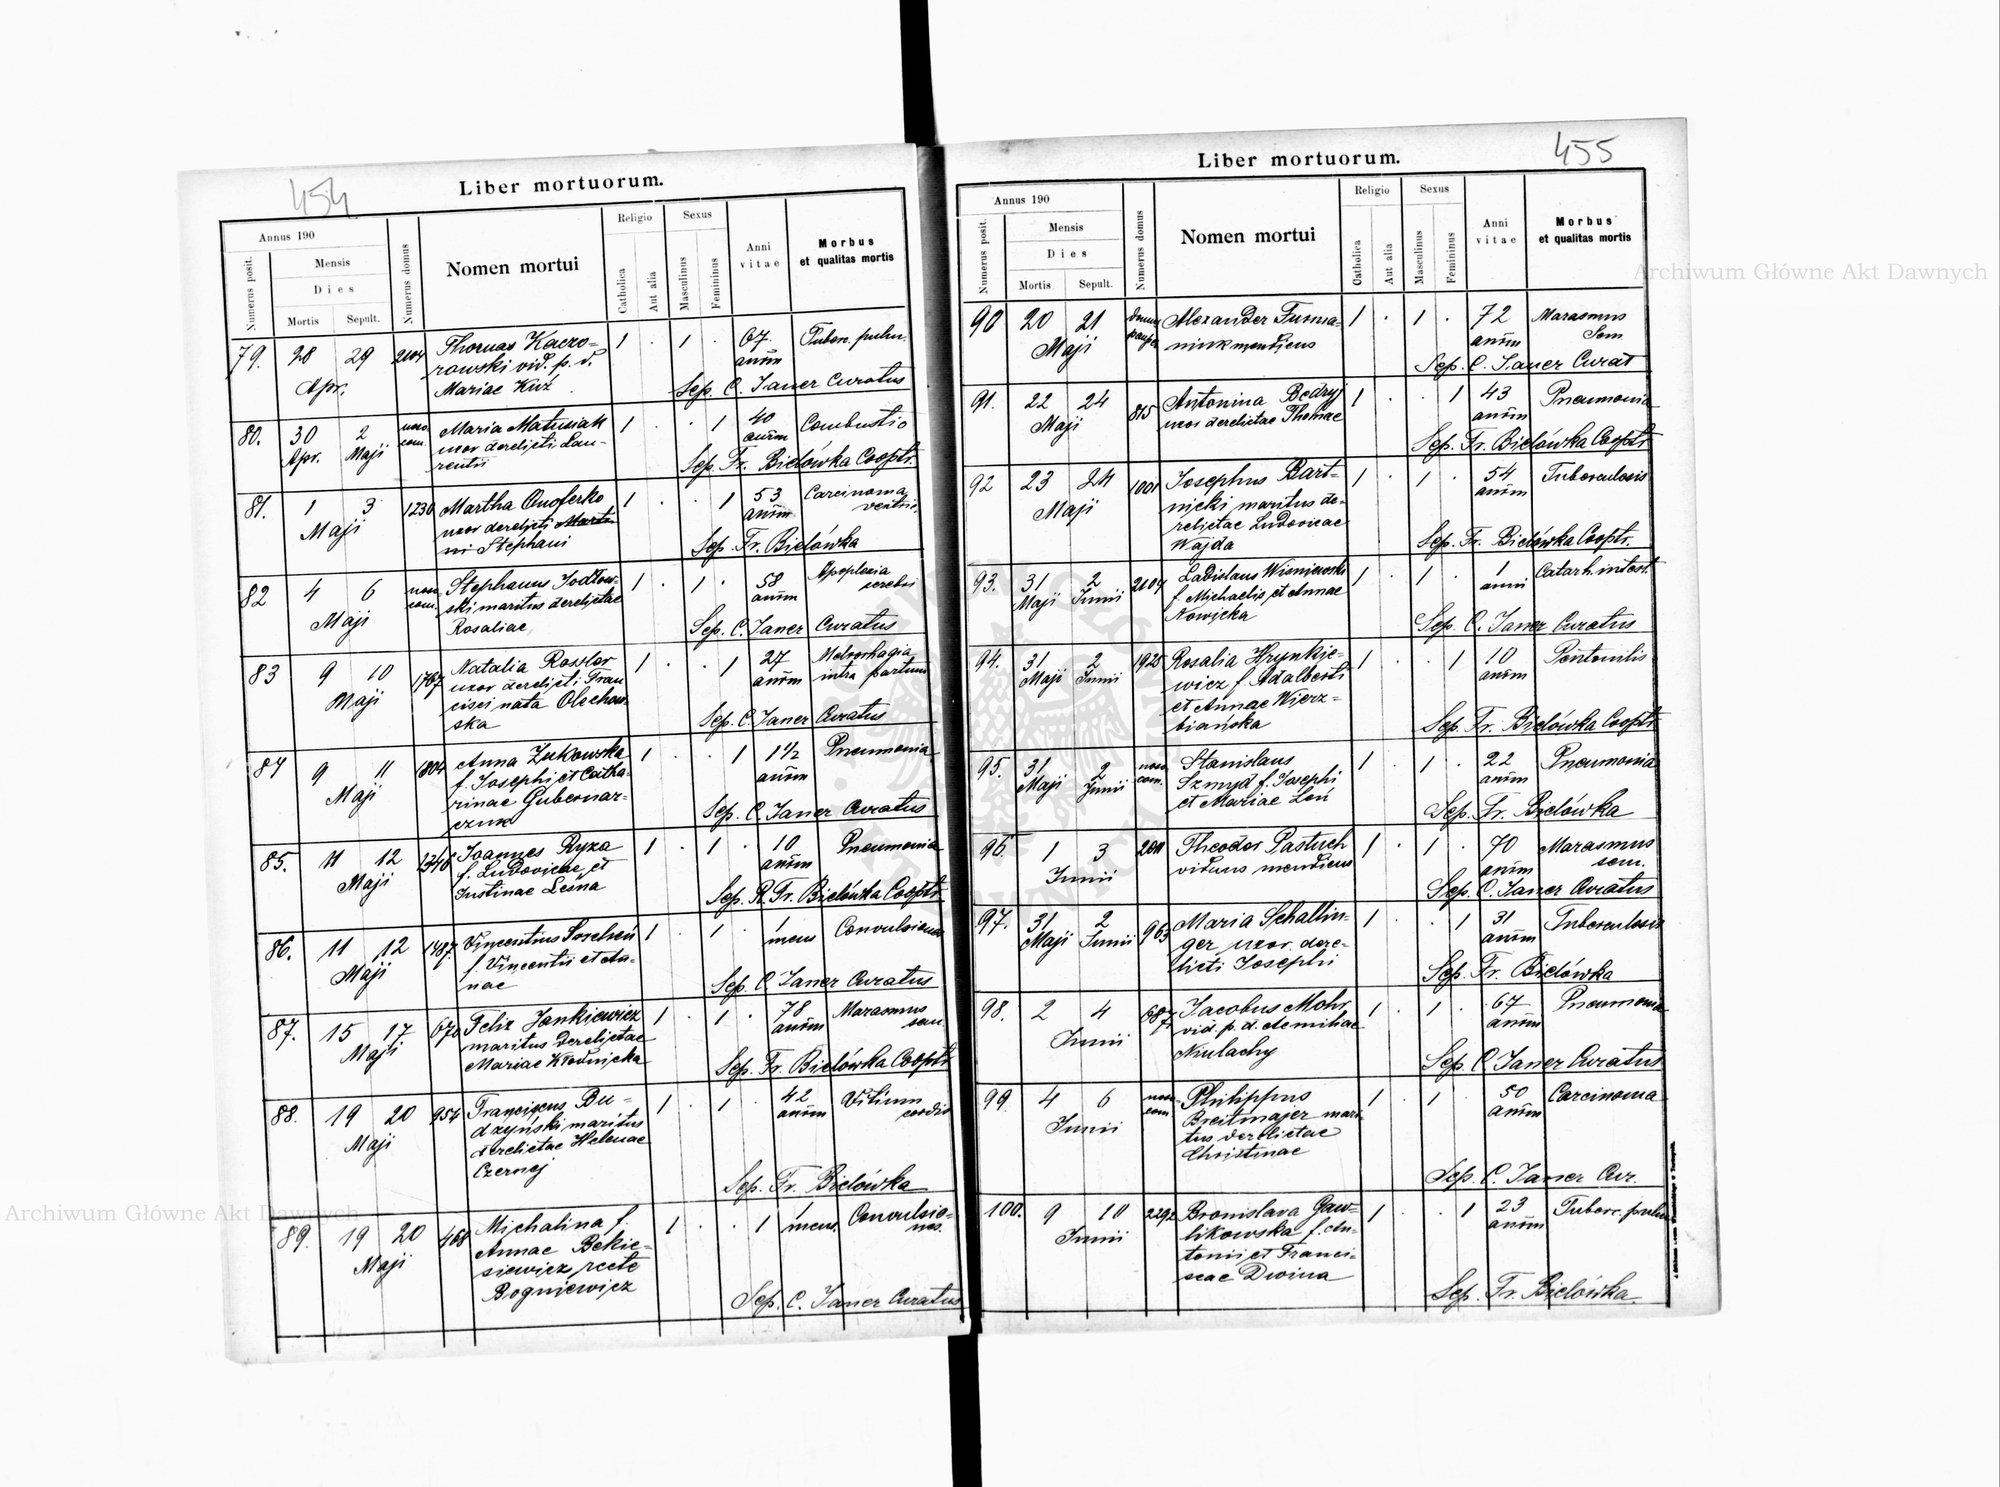 454
Liber mortuorum.
Annus 190
Numerus posit.
Mensis
Dies
Mortis
Sepult.
Numerus domus
Nomen mortui
Religio
Catholica
Aut alia
Sexus
Masculinus
Femininus
Anni vitae
Morbus
et qualitas mortis
79. 28 29 2104 Thomas Kaczo- 1 . 1 . 67 Tuberc. pulm.
Apr. rowski vid. p. d. anom
Mariae Kuź Sep. C. Janer Curatus
80. 30 2 noso Maria Matusiak 1 . . 1 40 Combustio
Apr. Maji com. uxor derelicti Lau- anom
rentii Sep. Fr. Bielówka Cooptr.
81. 1 3 1230 Martha Onoferko 1 . . 1 53 Carcinoma
Maji uxor derelicti Marti- anom ventric.
ni Stephani Sep. Fr. Bielówka
82 4 6 noso Stephanus Jodłow- 1 . 1 . 58 Apoplexia
Maji com. ski maritus derelictae anom cerebri
Rosaliae Sep. C. Janer Curatus
83 9 10 1767 Natalia Rossler 1 . . 1 27 Metrorhagia
Maji uxor derelicti Fran anom intra partum
cisci nata Olechow
ska Sep. C. Janer Curatus
84 9 11 1804 Anna Żukowska 1 . . 1 1½ Pneumonia
Maji f. Josephi et Catha- anom
rinae Gubernar-
czuk Sep. C. Janer Curatus
85. 11 12 Joannes Ryza 1 . 1 . 10 Pneumonia
Maji f. Ludovicae et anom
Justinae Leśna Sep. R. Fr. Bielówka Cooptr.
86. 11 12 1487 Vincentius 1 . 1 . 1 Convulsiones
Maji f. Vincentii et An- mens
nae Sep. C. Janer Curatus
87. 15 17 670 Felix Jankiewicz 1 . 1 . 78 Marasmus
Maji maritus derelictae anom sen.
Mariae Kłodnicka Sep. Fr. Bielówka Cooptr.
88. 19 20 954 Franciscus Bu- 1 . 1 . 42 Vitium
Maji dzyński maritus anom cordis
derelictae Helenae
Czernej Sep. Fr. Bielówka
89. 19 20 468 Michalina f. 1 . . 1 1 Convulsio-
Maji Annae Bekie- mens. nes.
siewicz recte
Bogniewicz Sep. C. Janer Curatus
455
Liber mortuorum.
Annus 190
Numerus posit.
Mensis
Dies
Mortis
Sepult.
Numerus domus
Nomen mortui
Religio
Catholica
Aut alia
Sexus
Masculinus
Femininus
Anni vitae
Morbus
et qualitas mortis
90 20 21 domus Alexander Furma- 1 . 1 . 72 Marasmus
Maji niuk mendicus anom Sem
Sep. C. Janer Curat
91. 22 24 815 Antonina Bedryj 1 . 1 43 Pneumonia
Maji uxor derelictae Thomae anom
Sep. Fr. Bielówka Cooptr
92 23 24 1001 Josephus Bart- 1 . 1 . 54 Tuberculosis
Maji nicki maritus de- anom
relictae Ludovicae
Wajda Sep. Fr. Bielówka Cooptr.
93. 31 2 2104 Ladislaus Wiśniewski 1 . 1 . 1 Catarh. intest.
Maji Junii f. Michaelis et Annae anni
Nowicka Sep. C. Janer Curatus
94. 31 2 1925 Rosalia Hrynkie- 1 . . 1 10
Maji Junii wicz f. Adalberti anom
et Annae Wierz-
biańska Sep. Fr. Bielówka Cooptr
95. 31 2 noso Stanislaus 1 . 1 . 22 Pneumonia
Maji Junii com. Szmyd f. Josephi anom
et Mariae Leń Sep. Fr. Bielówka
96. 1 3 2011 Theodor Pastuch 1 . 1 . 70 Marasmus
Junii viduus mendicus anom sem.
Sep. C. Janer Curatus
97. 31 2 963 Maria Schallin- 1 . . 1 31 Tuberculosis
Maji Junii ger uxor dere- anom
licti Josephi Sep. Fr. Bielówka
98. 2 4 687 Jacobus Mohr 1 . 1 . 67 Pneumonia
Junii vid. p. d. Aemiliae anom
Mulachy Sep. C. Janer Curatus
99. 4 6 noso Philippus 1 . 1 50 Carcinoma
Junii com Breitmajer mari- anom
tus derelictae
Christinae Sep. C. Janer Cur.
100. 9 10 2292 Bronislava Gaw- 1 . . 1 23 Tuberc. pulm
Junii likowska f. An- anom
tonii et Franci-
scae Dwina Sep. Fr. Bielówka.
Archiwum Główne Akt Dawnych
Archiwum Główne Akt Dawnych